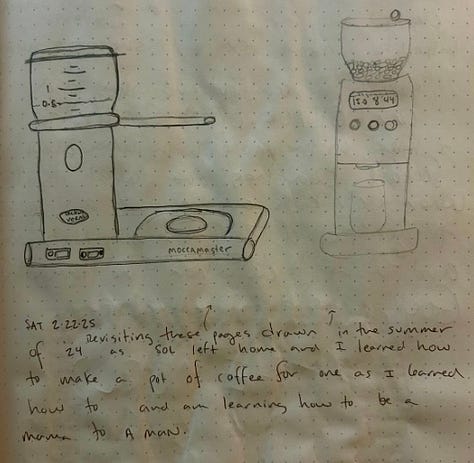 1
0.6
150 8 44
TECHNI
VORM
moccamaster
SAT 2.22.25
Revisiting these pages drawn in the summer
of '24 as Sol left home and I learned how
to make a pot of coffee for one as I learned
how to and am learning how to be a
mama to a man.